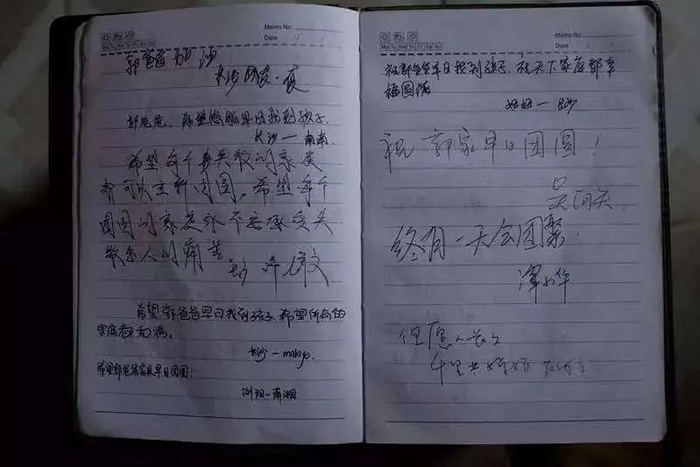 Memo No.
Mo Tu We Th Fr Sa Su
Date
郭爸爸 加油
长沙
郭爸爸,希望您能早日找到孩子.
长沙一南南
希望每个丢失散的家庭
都可以重新团圆。希望每个
团圆的家庭永不要承受失
散亲人的痛苦。
希望郭爸爸早日找到孩子,希望所有的
家庭都和满。
长沙一
希望郭爸爸家早日团圆!
浏阳一南湘
Memo No.
Mo Tu We Th Fr Sa Su
Date
祝郭爸爸早日找到孩子,祝天下家庭都幸
福团圆
祝郭家早日团圆!
终有一天会团聚!
谭小华
但愿人长久
千里共婵娟